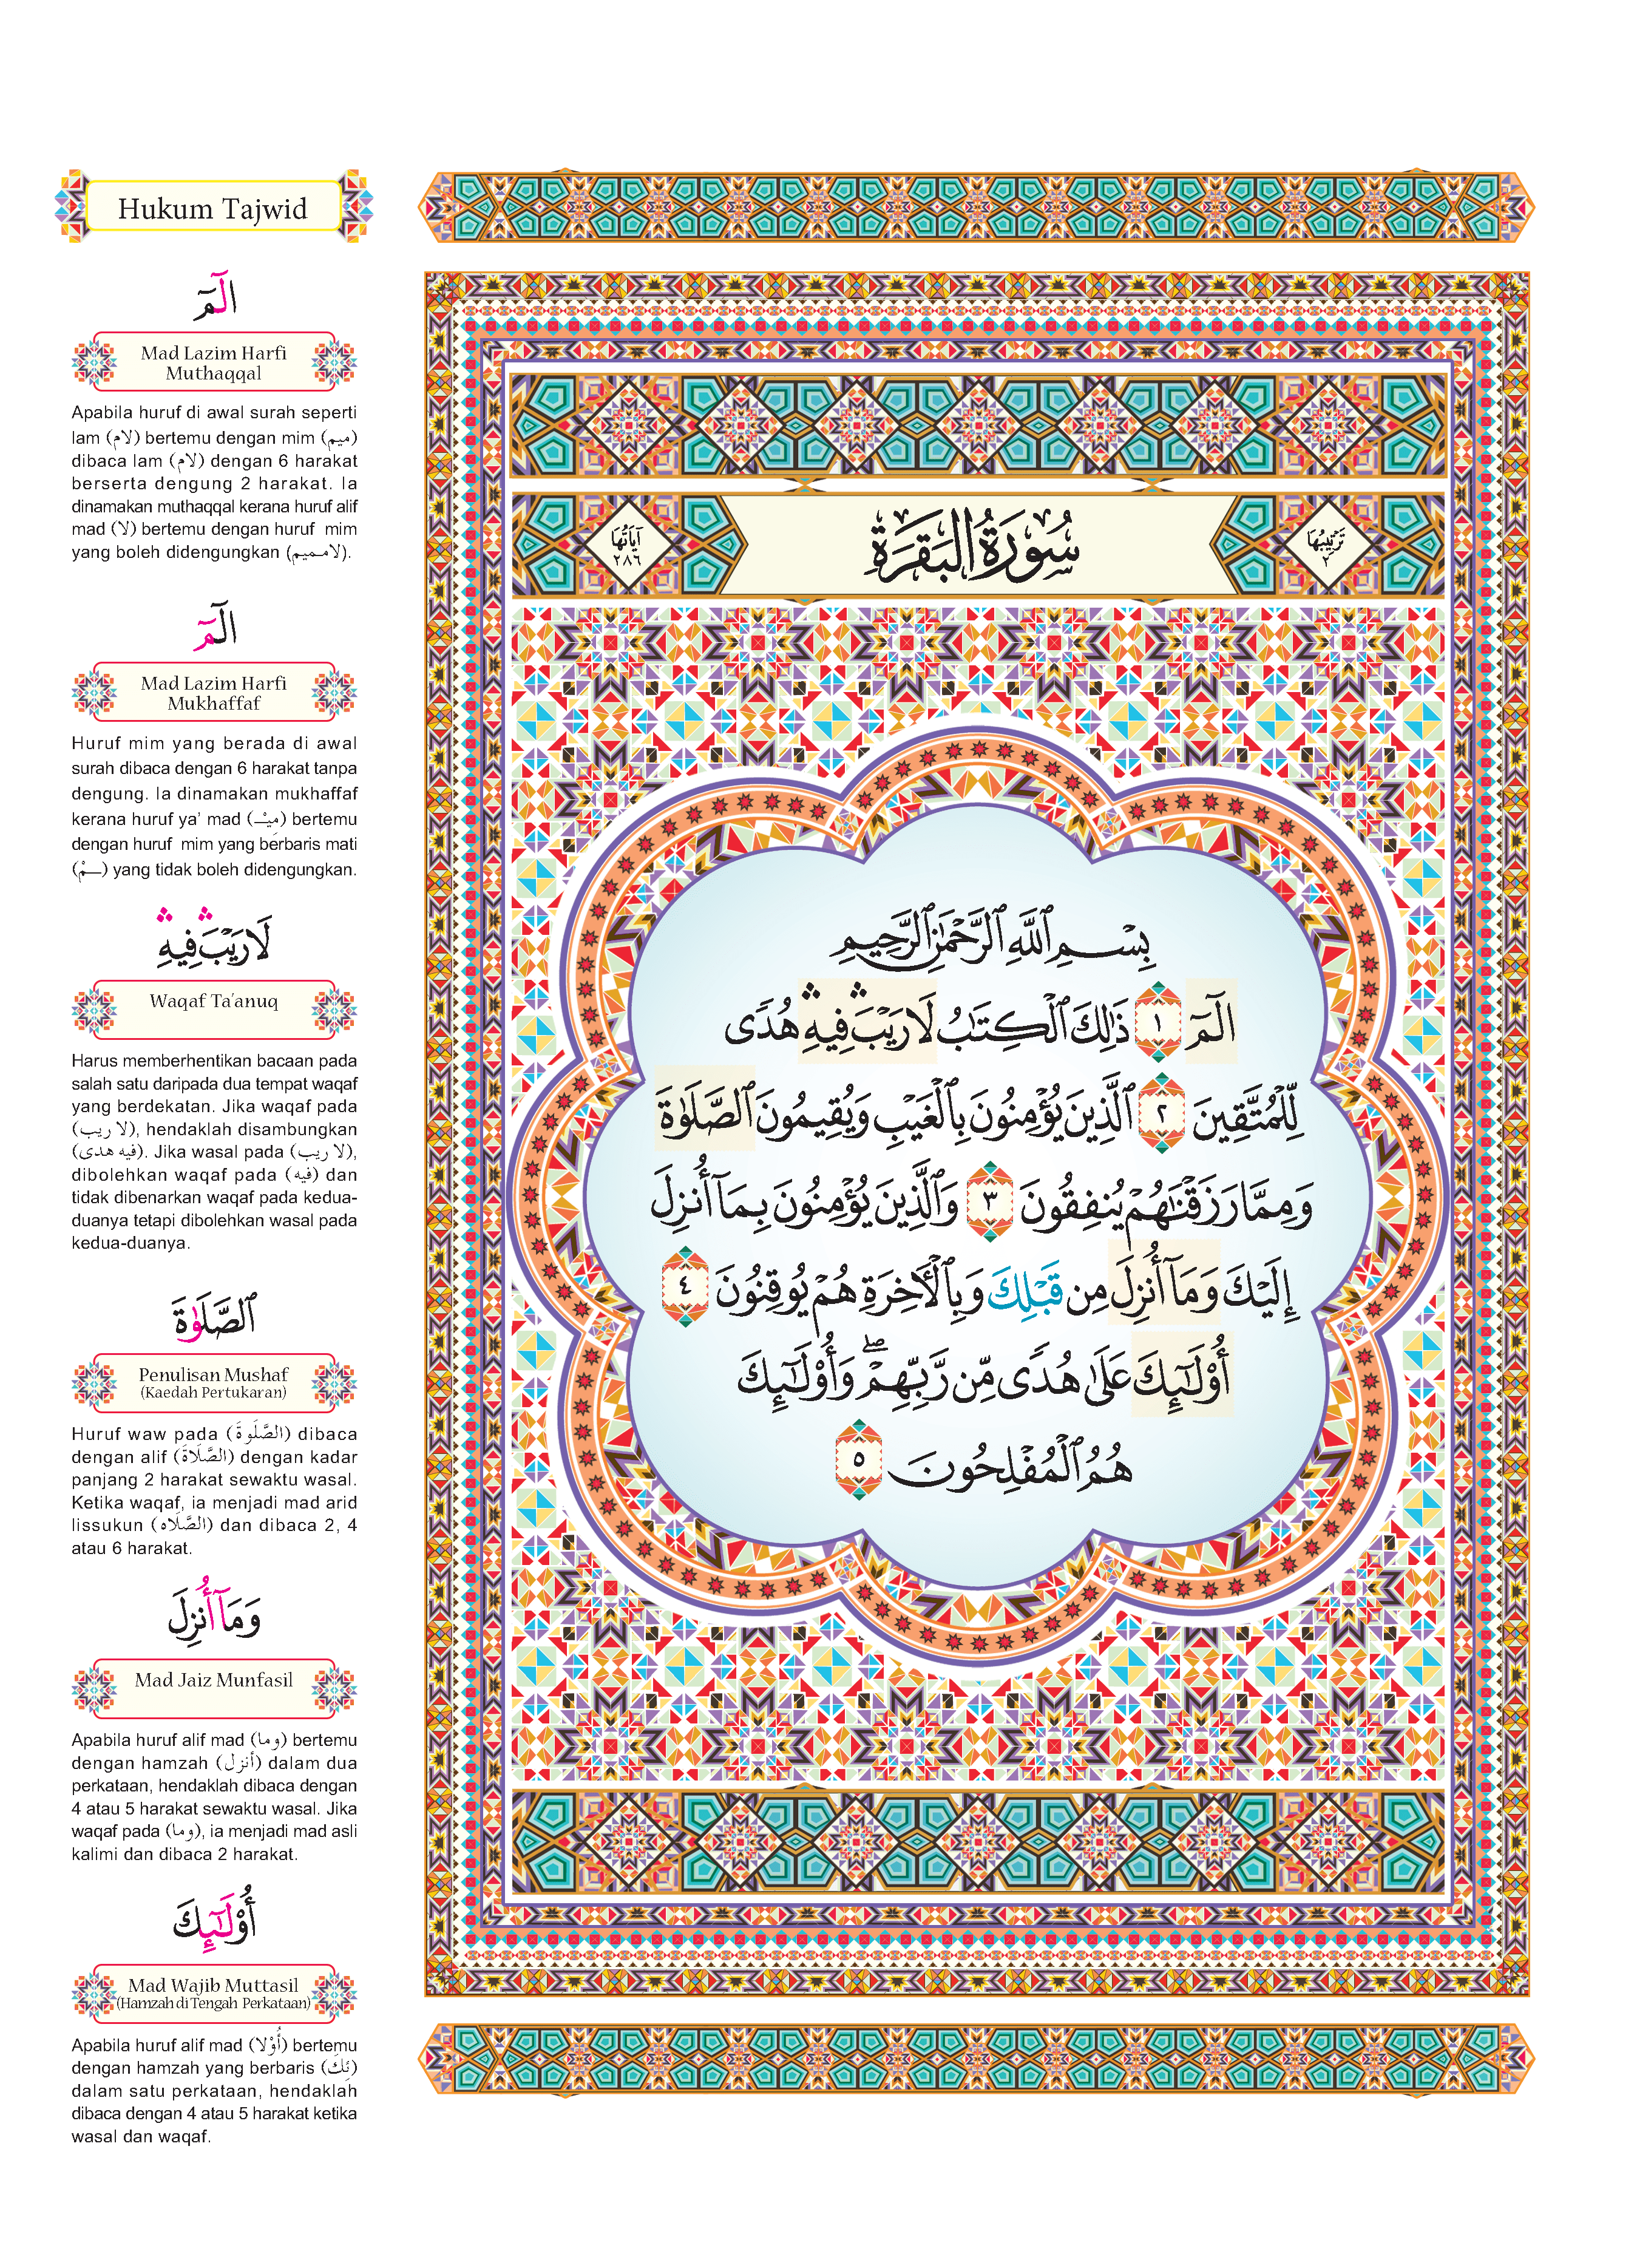 Hukum Tajwid
الٓمٓ
Mad Lazim Harfi
Muthaqqal
Apabila huruf di awal surah seperti
lam (لام) bertemu dengan mim (ميم)
dibaca lam (لام) dengan 6 harakat
berserta dengung 2 harakat. Ia
dinamakan muthaqqal kerana huruf alif
mad (لا) bertemu dengan huruf mim
yang boleh didengungkan (لامـميم).
الٓمٓ
Mad Lazim Harfi
Mukhaffaf
Huruf mim yang berada di awal
surah dibaca dengan 6 harakat tanpa
dengung. Ia dinamakan mukhaffaf
kerana huruf ya' mad (مِيْـ) bertemu
dengan huruf mim yang berbaris mati
(ـمْ) yang tidak boleh didengungkan.
لَا رَيْبَ ۛ فِيهِ ۛ
Waqaf Ta'anuq
Harus memberhentikan bacaan pada
salah satu daripada dua tempat waqaf
yang berdekatan. Jika waqaf pada
(لا ريب), hendaklah disambungkan
(فيه هدى). Jika wasal pada (لا ريب),
dibolehkan waqaf pada (فيه) dan
tidak dibenarkan waqaf pada kedua-
duanya tetapi dibolehkan wasal pada
kedua-duanya.
ٱلصَّلَوٰةَ
Penulisan Mushaf
(Kaedah Pertukaran)
Huruf waw pada (الصَّلَوةَ) dibaca
dengan alif (الصَّلَاةَ) dengan kadar
panjang 2 harakat sewaktu wasal.
Ketika waqaf, ia menjadi mad arid
lissukun (الصَّلَاه) dan dibaca 2, 4
atau 6 harakat.
وَمَآ أُنزِلَ
Mad Jaiz Munfasil
Apabila huruf alif mad (وما) bertemu
dengan hamzah (أنزل) dalam dua
perkataan, hendaklah dibaca dengan
4 atau 5 harakat sewaktu wasal. Jika
waqaf pada (وما), ia menjadi mad asli
kalimi dan dibaca 2 harakat.
أُو۟لَٰٓئِكَ
Mad Wajib Muttasil
(Hamzah di Tengah Perkataan)
Apabila huruf alif mad (أُوْلا) bertemu
dengan hamzah yang berbaris (ئِكَ)
dalam satu perkataan, hendaklah
dibaca dengan 4 atau 5 harakat ketika
wasal dan waqaf.
تَرْتِيبُهَا
٢
سُورَةُ الْبَقَرَةِ
آيَاتُهَا
٢٨٦
بِسْمِ ٱللَّهِ ٱلرَّحْمَٰنِ ٱلرَّحِيمِ
الٓمٓ ١ ذَٰلِكَ ٱلْكِتَٰبُ لَا رَيْبَ ۛ فِيهِ ۛ هُدًى
لِّلْمُتَّقِينَ ٢ ٱلَّذِينَ يُؤْمِنُونَ بِٱلْغَيْبِ وَيُقِيمُونَ ٱلصَّلَوٰةَ
وَمِمَّا رَزَقْنَٰهُمْ يُنفِقُونَ ٣ وَٱلَّذِينَ يُؤْمِنُونَ بِمَآ أُنزِلَ
إِلَيْكَ وَمَآ أُنزِلَ مِن قَبْلِكَ وَبِٱلْأَخِرَةِ هُمْ يُوقِنُونَ ٤
أُو۟لَٰٓئِكَ عَلَىٰ هُدًى مِّن رَّبِّهِمْ ۖ وَأُو۟لَٰٓئِكَ
هُمُ ٱلْمُفْلِحُونَ ٥